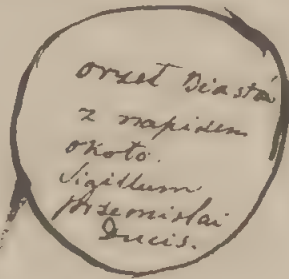 orzeł Piastá
z napisem
około.
Sigillum
Przemislai
Ducis.